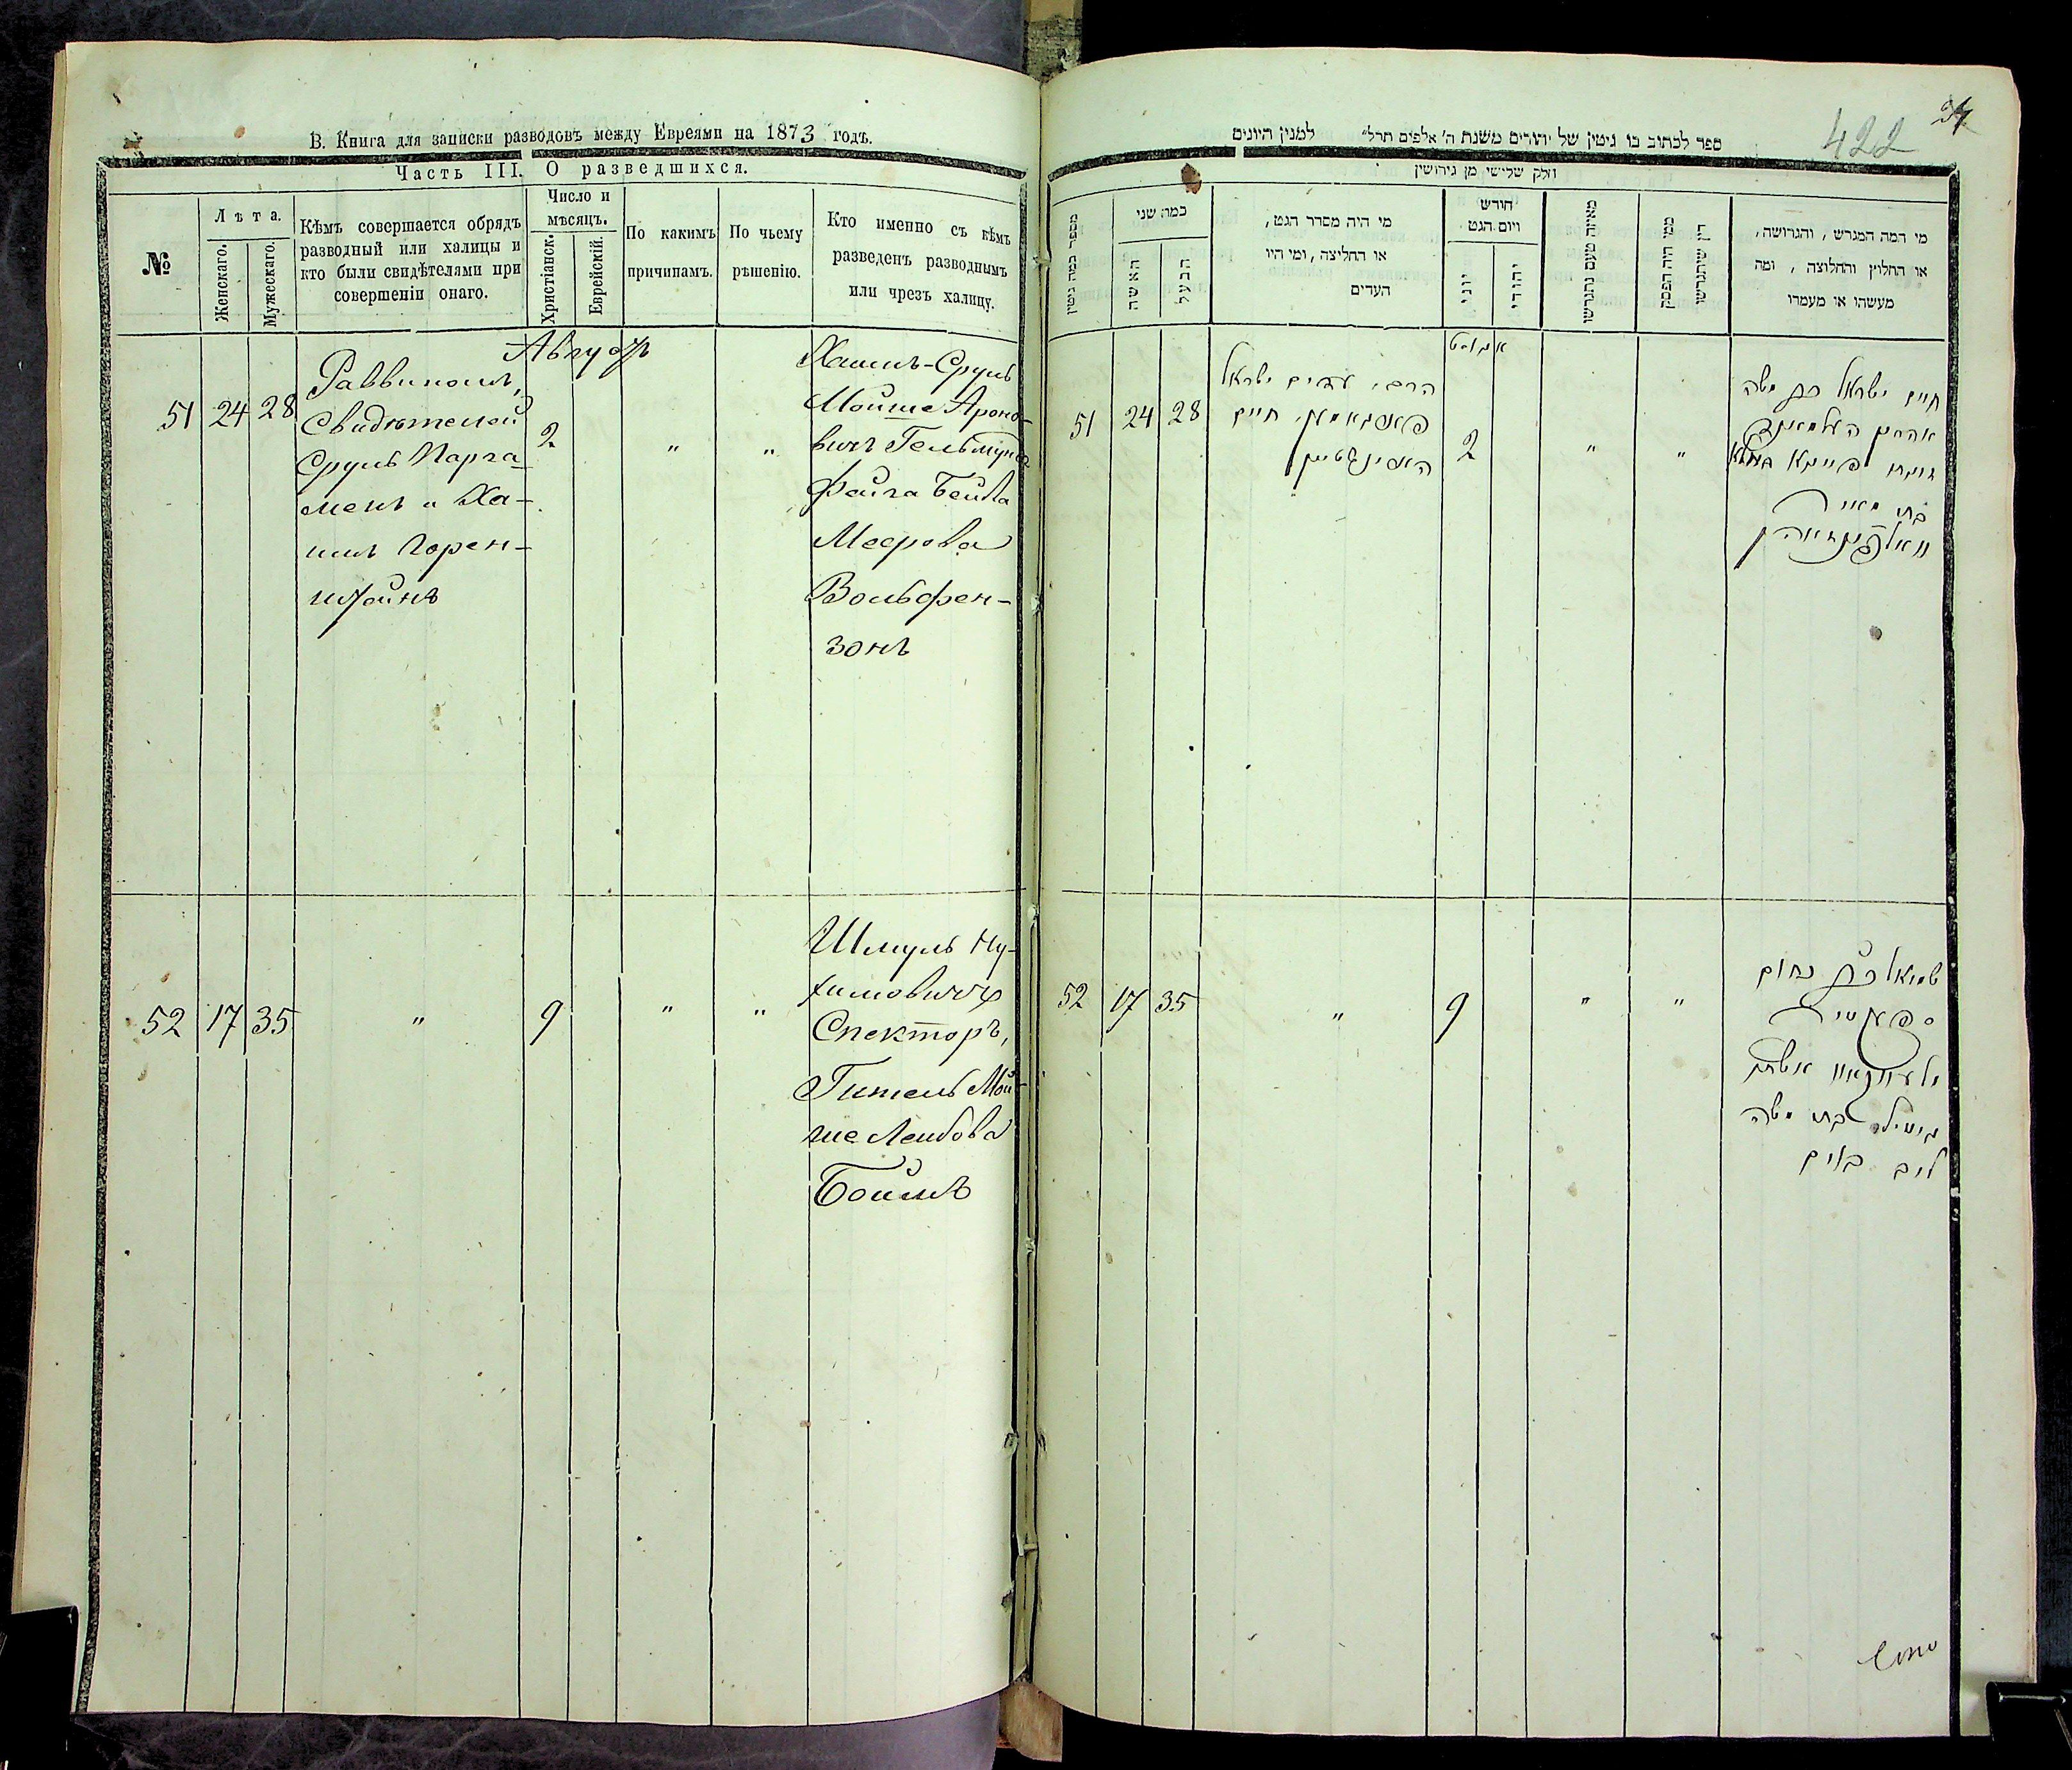 В. Книга для записки разводовъ между Евреями на 1873 годъ.
Часть III. О разведшихся.
№
Лѣта.
Женскаго.
Мужескаго.
Кѣмъ совершается обрядъ
разводный или халицы и
кто были свидѣтелями при
совершеніи онаго.
Число и
мѣсяцъ.
Христіанск.
Еврейскій.
По какимъ
причинамъ.
По чьему
рѣшенію.
Кто именно съ кѣмъ
разведенъ разводнымъ
или чрезъ халицу.
Августъ
51 24 28
Раввиномъ,
Свидѣтелей
Сруль Парга-
менъ и Ха-
имъ Горен-
штейнъ
2 " "
Хаимъ-Сруль
Мойше Ароно-
вичъ Гельмунд
Фейга Бейла
Меерова
Вольфен-
зонъ
52 17 35 " 9 " "
Шмуль Ну-
химовичъ
Спекторъ,
Гитель Мой-
ше Лейбова
Боймъ
422
24
ספר לכתוב בו גיטין של יהודים משנת ה' אלפים תרל" למנין היונים
חלק שלישי מן גירושין
מספר כמה גיטין
כמה שני
האשה
הבעל
מי היה מסדר הגט,
או החליצה, ומי היו
העדים
חודש
ויום הגט
יוני
יהודי
מאיזה טעם נתגרשו
ממי היה הפסק
דין שיתגרשו
מי המה המגרש, והגרושה,
או החלוץ והחלוצה, ומה
מעשהו או מעמדו
אוגוסט
51 24 28
הרב, עדים ישראל
חיים
2 " "
חיים ישראל בן משה
אהרן
בת מאיר
52 17 35 " 9 " "
שמואל בן נחום
ספעקטיר
גיטיל בת משה
ליב בוים